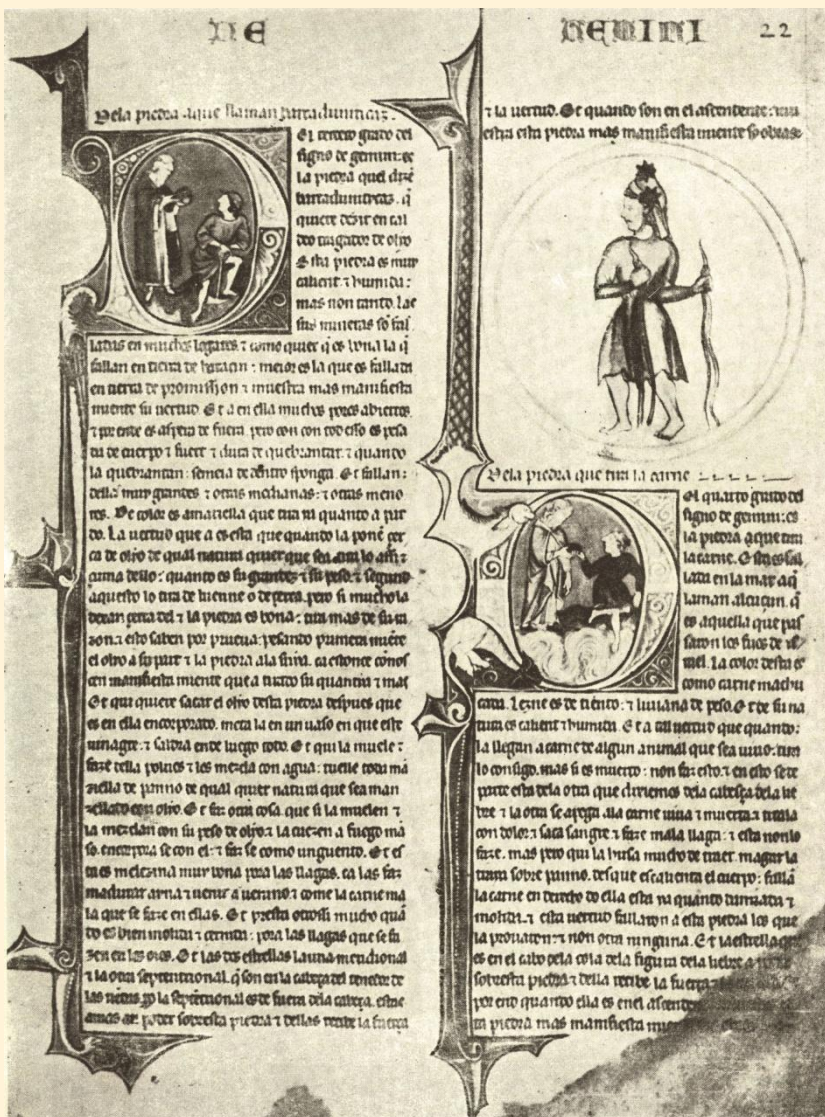 DE
GEMINI 22
De la piedra aque llaman
Del tercero grado del
signo de gemini: es
la piedra quel dizē
q̄
quiere dezir en cal
deo tragador de olio
Esta piedra es muy
calient ⁊ humida:
mas non tanto. Las
sus mineras sō fal
ladas en muchos logares ⁊ como quier q̄ es bona la q̄
fallan en tierra de ⁊ meior es la que es fallada
en tierra de promission ⁊ muestra mas manifiesta
miente su uertud. Et a en ella muchos poros abiertos.
⁊ por ente es aspera de fuera. pero con con tod esso es pesa
da de cuerpo ⁊ fuert ⁊ dura de quebrantar. ⁊ quando
la quebrantan: semeia de dentro sponga. Et fallan:
della muy grandes ⁊ otras medianas: ⁊ otras meno
res. De color es amariella que tira ya quanto a par
do. La uertud que a es esta que quando la ponē cer
ca de olio de qual natura quier que sea tira lo assi ⁊
dello: quanto es su grandez ⁊ su peso. ⁊ segund
aquesto lo tira de luenne o de cerca. pero si mucho la
dexan cerca del ⁊ la piedra es bona: tira mas de su ra
zon. ⁊ esto saben por prueua. pesando primera miētre
el olio a su part ⁊ la piedra ala suya. ca estonce conos
cen manifiesta miente que a tirado su quantia ⁊ mas
Et qui quiere sacar el olio desta piedra despues que
es en ella encorporado. meta la en un uaso en que este
uinagre. ⁊ saldra ende luego todo. Et qui la muele ⁊
faze della poluos ⁊ los mezcla con agua: tuelle toda mā
ziella de panno de qual quier natura que sea man
zellado con olio. Et faz otra cosa. que si la muelen ⁊
la mezclan con su peso de olio. ⁊ la cuezen a fuego mā
so. encorpora se con el. ⁊ faz se como unguento. Et es
melezina muy bona pora las llagas. ca las faz
madurar ⁊ uenir a uenino. ⁊ come la carne ma
la que se faze en ellas. Et presta otrossi mucho quā
do es bien molida ⁊ cernida: pora las llagas que se fa
zen en los oios. Et las dos estrellas la una meridional
⁊ la otra septentrional. q̄ son en la cabeça del tenedor de
las riendas la septentrional es de fuera dela cabeça.
amas an poder sobresta piedra ⁊ dellas recibe la fuerça
⁊ la uertud. Et quando son en el ascendente: mu
estra esta piedra mas manifiesta miente sus obras.
De la piedra que tira la carne
Del quarto grado del
signo de gemini: es
la piedra aque tira
la carne. Esta es fal
lada en la mar aq̄
laman alcuçun. q̄
es aquella que pas
saron los fijos de is
rael. La color desta es
como carne machu
cada. Lezne es de tiento: ⁊ liuiana de peso. Et de su na
tura es calient ⁊ humida. Et a tal uertud que quando:
la llegan a carne de algun animal que sea uiuo: tira
lo consigo. mas si es muerto: non faz esto. ⁊ en esto se de
parte esta dela otra que diziemos dela cabesça dela lie
bre ⁊ la otra se apega ala carne uiua ⁊ muerta. ⁊ tirala
con dolor. ⁊ saca sangre ⁊ faze mala llaga: ⁊ esta non lo
faze. mas pero qui la husa mucho de traer. magar la
traya sobre panno. desque escalienta el cuerpo: falla
la carne en derecho do ella esta ya quanto ⁊
molida. ⁊ esta uertud fallaron a esta piedra los que
la prouaron: ⁊ non otra ninguna. Et la estrella que
es en el cabo dela cola dela figura dela liebre a
sobresta piedra. ⁊ della recibe la fuerça ⁊
por end quando ella es en el ascendente
ta piedra mas manifiesta